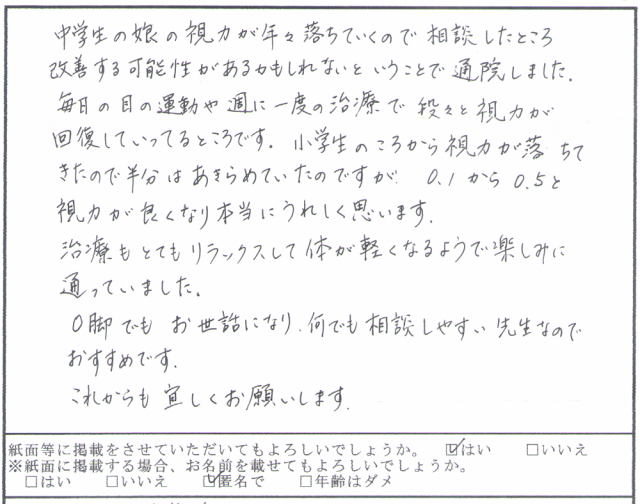 中学生の娘の視力が年々落ちていくので相談したところ
改善する可能性があるかもしれないということで通院しました。
毎日の目の運動や週に一度の治療で段々と視力が
回復していってるところです。小学生のころから視力が落ちて
きたので半分はあきらめていたのですが 0.1から0.5と
視力が良くなり本当にうれしく思います。
治療もとてもリラックスして体が軽くなるようで楽しみに
通っていました。
O脚でもお世話になり、何でも相談しやすい先生なので
おすすめです。
これからも宜しくお願いします。
紙面等に掲載をさせていただいてもよろしいでしょうか。 ☑はい □いいえ
※紙面に掲載する場合、お名前を載せてもよろしいでしょうか。
□はい □いいえ ☑匿名で □年齢はダメ